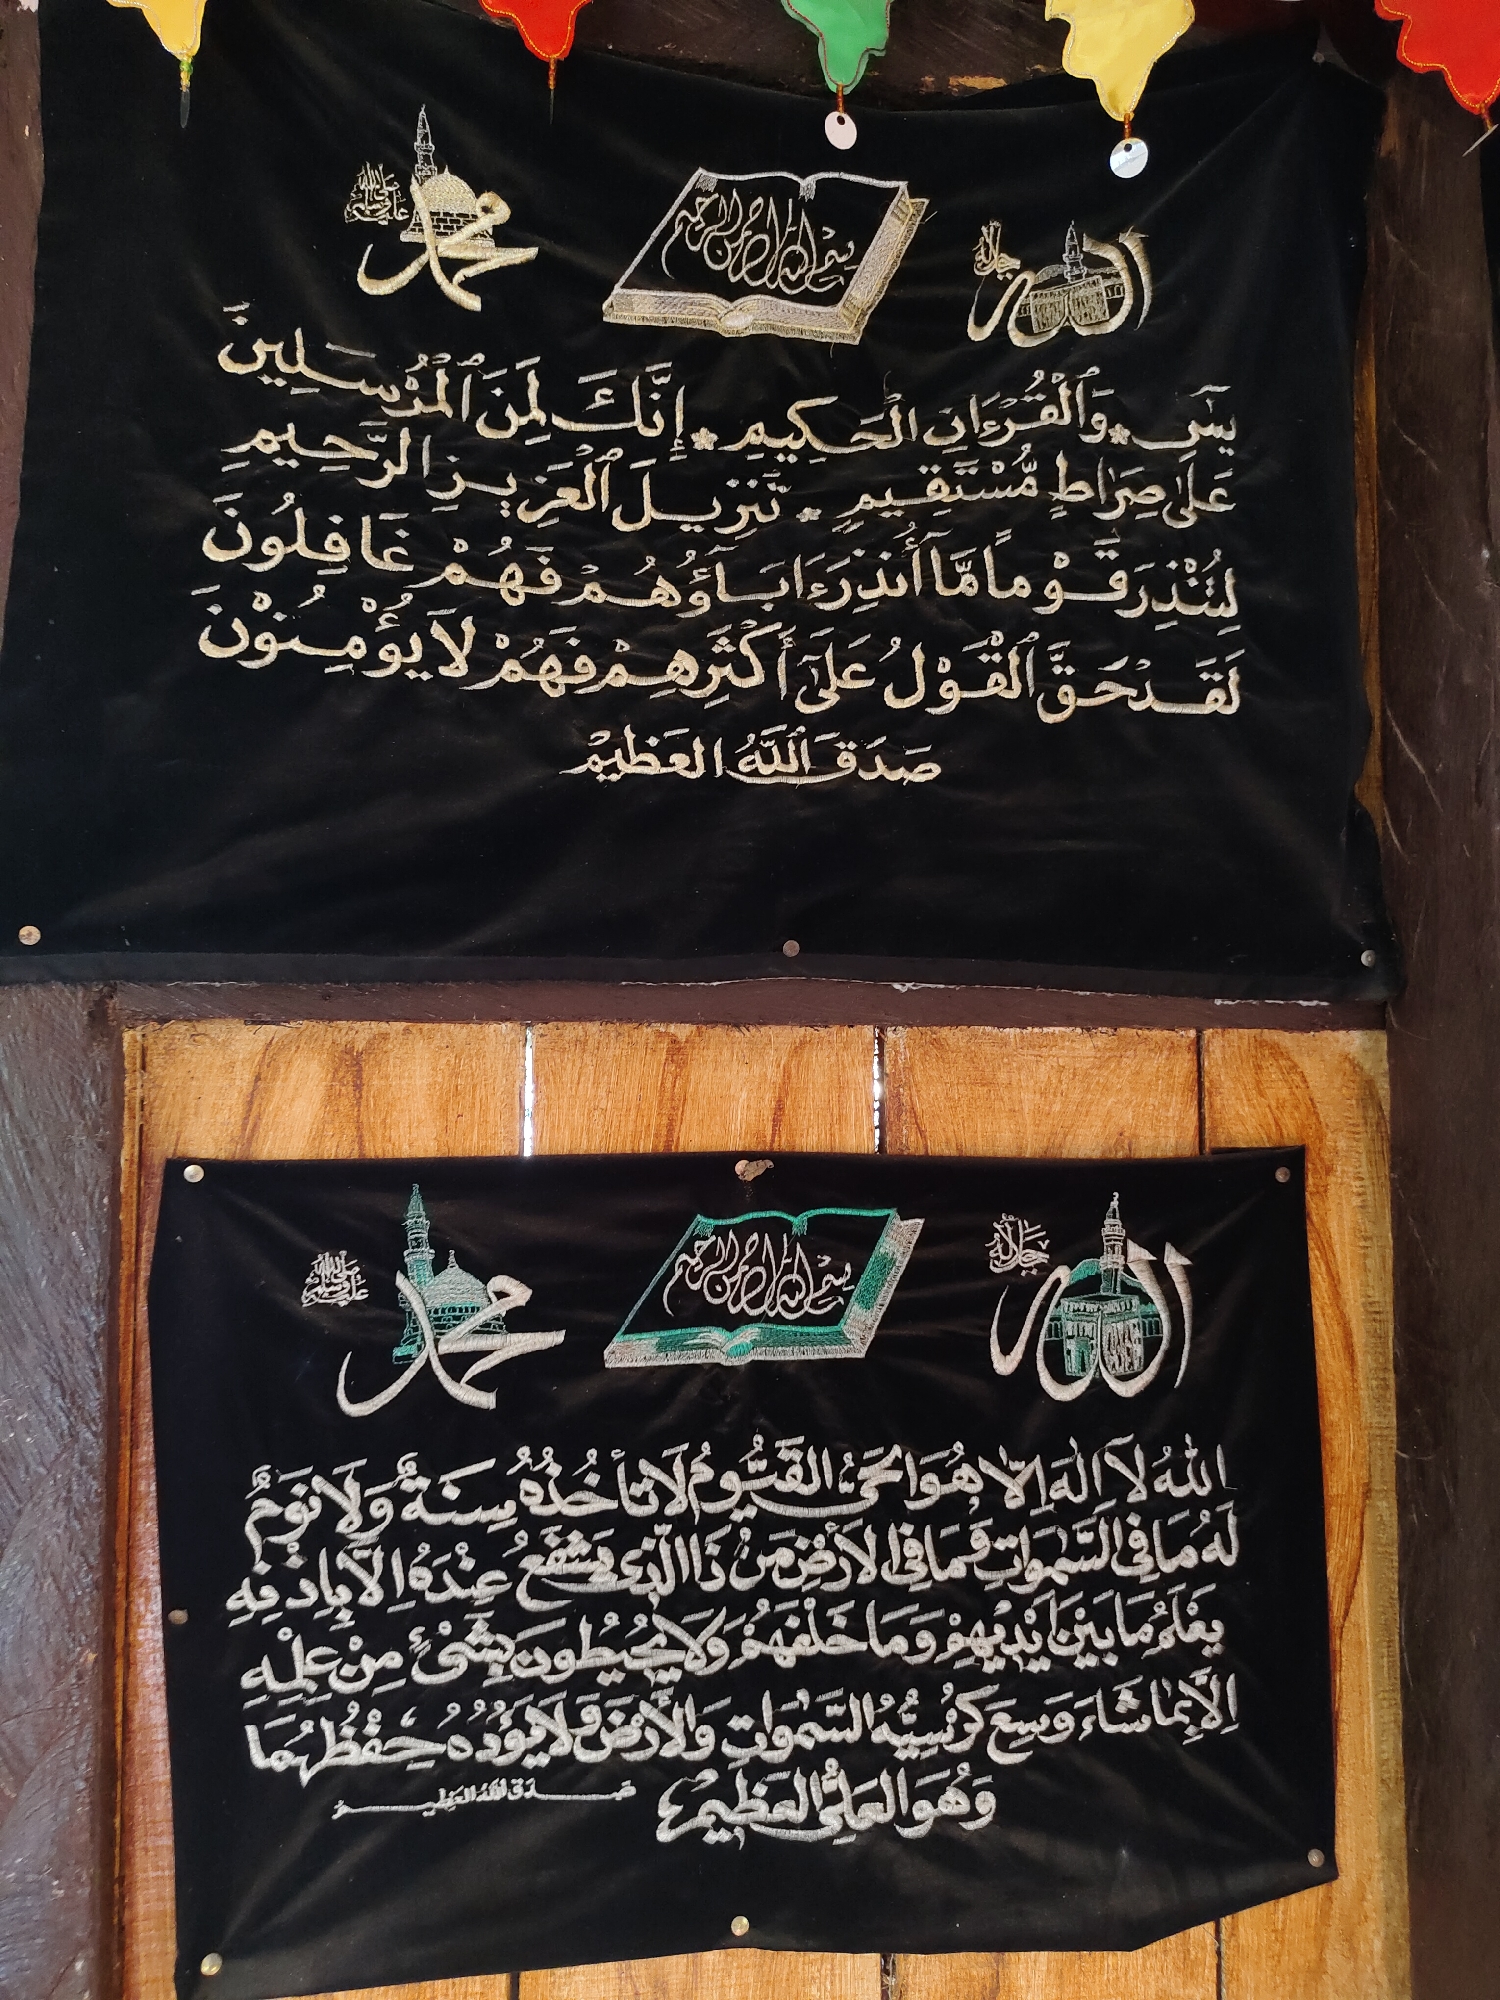 الله جل جلاله
بسم الله الرحمن الرحيم
محمد صلى الله عليه وسلم
يسٓ * وَٱلْقُرْءَانِ الْحَكِيمِ * إِنَّكَ لَمِنَ ٱلْمُرْسَلِينَ
عَلىٰ صِرَاطٍ مُّسْتَقِيمٍ * تَنزِيلَ ٱلْعَزِيزِ الرَّحِيمِ
لِتُنْذِرَ قَوْماً مَّا أُنذِرَ ءَابَاؤُهُمْ فَهُمْ غَافِلُونَ
لَقَدْ حَقَّ ٱلْقَوْلُ عَلَىٰٓ أَكْثَرِهِمْ فَهُمْ لَا يُؤْمِنُوْنَ
صَدَقَ ٱللَّهُ العَظِيمْ
الله جل جلاله
بسم الله الرحمن الرحيم
محمد صلى الله عليه وسلم
اللهُ لَا اِلٰهَ اِلَّا هُوَ الحَىُّ القَيُّومُ لَا تَأخُذُهُ سِنَةٌ وَلَا نَوْمٌ
لَهُ مَا فِى السَّمٰوَاتِ وَمَا فِى الاَرْضِ مَنْ ذَا الَّذِى يَشْفَعُ عِنْدَهُ اِلَّا بِاِذْنِهِ
يَعْلَمُ مَا بَيْنَ اَيْدِيْهِمْ وَمَا خَلْفَهُمْ وَلَا يُحِيْطُونَ بِشَىْءٍ مِنْ عِلْمِهِ
اِلَّا بِمَا شَاءَ وَسِعَ كُرْسِيُّهُ السَّمٰوَاتِ وَالْأَرْضَ وَلَا يَؤُدُهُ حِفْظُهُمَا
وَهُوَ العَلِىُّ العَظِيمُ صَدَقَ اللهُ العَظِيمُ